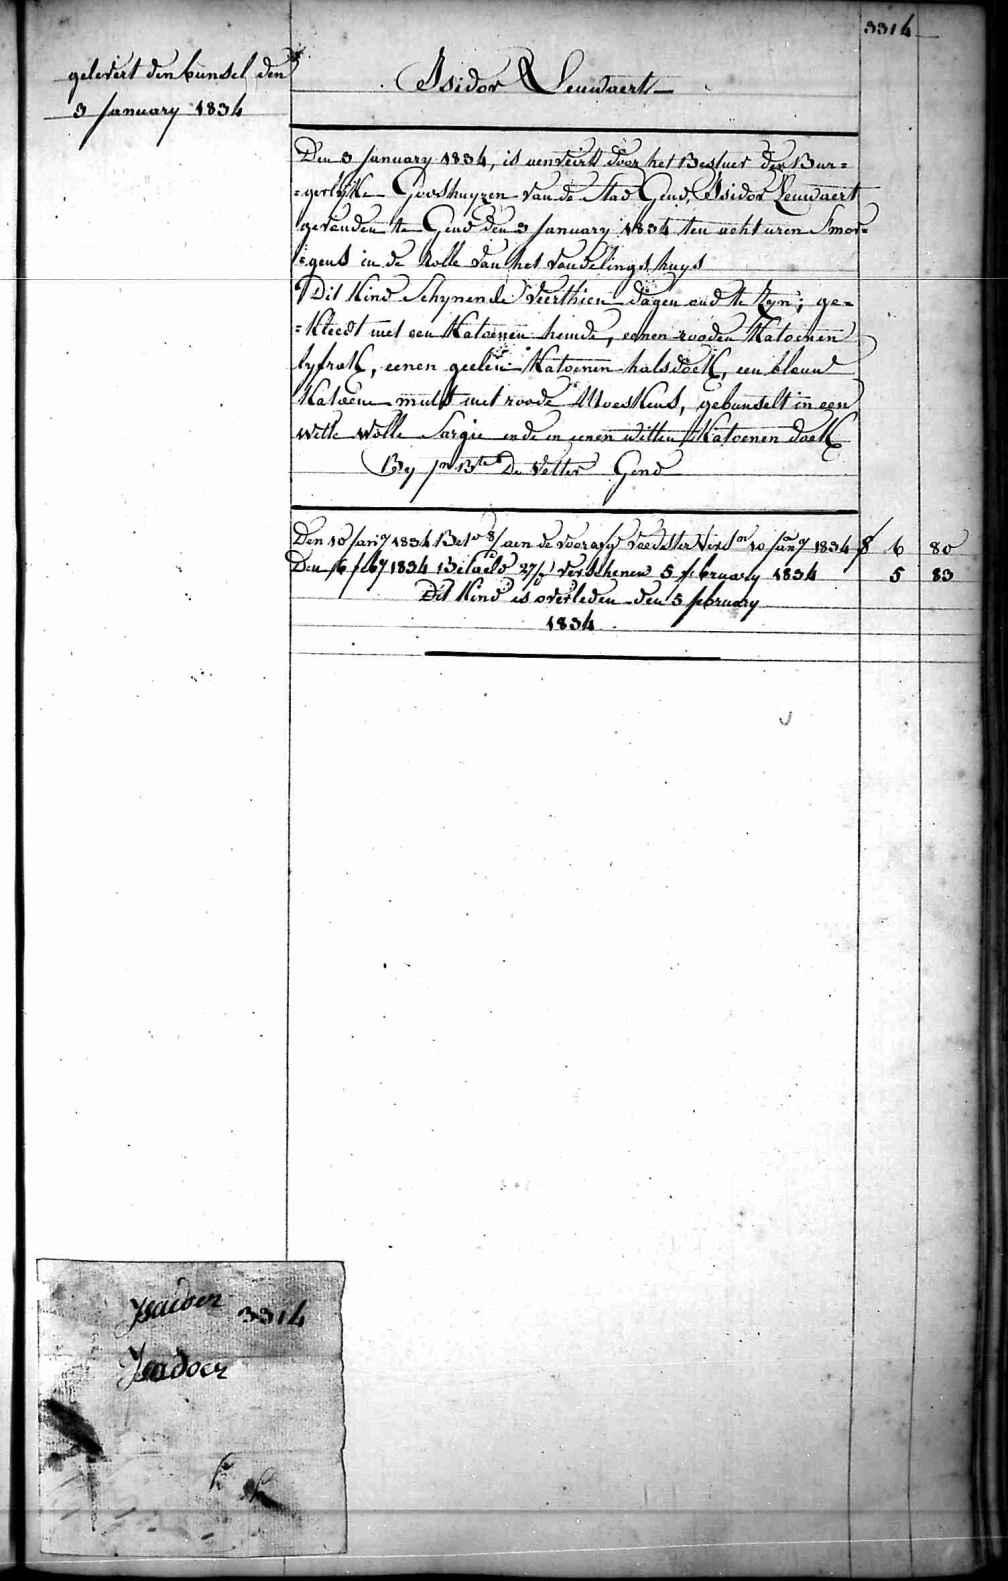 3314
gelevert den bunsel den
3 January 1834
Isidor Leuwaert
Den 3 January 1834, is aenveirt door het Bestuer der Bur=
=gerlyke Godshuyzen van de Stad Gend, Isidor Leuwaert
gevonden te Gend den 3 January 1834 ten acht uren Smor=
=gens in de Rolle van het vondelingshuys
Dit Kind Schynende Veerthien dagen oud te Zyn; ge=
=Kleedt met een Katoenen hemde, eenen rooden Katoenen
lyfrok, eenen geelen Katoenen halsdoek, een blauw
Katoene muts met roode Moeskens, gebunselt in een
witte wolle Sargie ende in eenen witten Katoenen doek
By De Vetter Gend
Den 10 Jan^y 1834 Bet^o 8/ aen de voorz voedster Versch^n 10 Jan^y 1834 f 6 80
Den 16 feb^y 1834 Betaelt 27/ verschenen 5 february 1834 5 83
Dit Kind is overleden den 5 february
1834
Ysaidoer 3314
Ysadoer